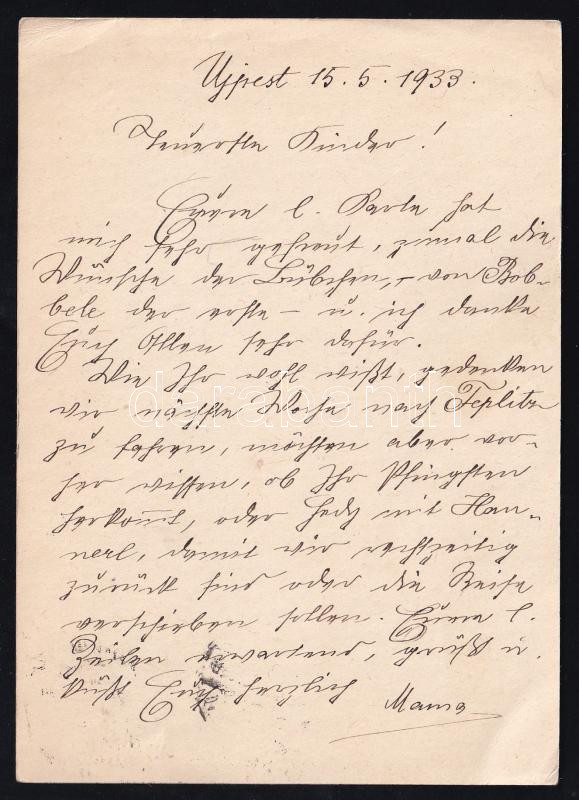 Ujpest 15.5.1933.
Teuerste Kinder!
Eure l. Karte hat
mich sehr gefreut, zumal die
Wünsche der Bübchen, – von Bob-
bele der erste – u. ich danke
Euch Allen sehr dafür.
Wie Ihr wohl wißt, gedenken
wir nächste Woche nach Teplitz
zu fahren, möchten aber vor-
her wissen, ob Ihr Pfingsten
herkommt, oder Hedy mit Han-
nerl, damit wir rechtzeitig
zurück sind oder die Reise
verschieben sollen. Eure l.
Zeilen erwartend, grüßt u.
küßt Euch herzlich
Mama
darabanth